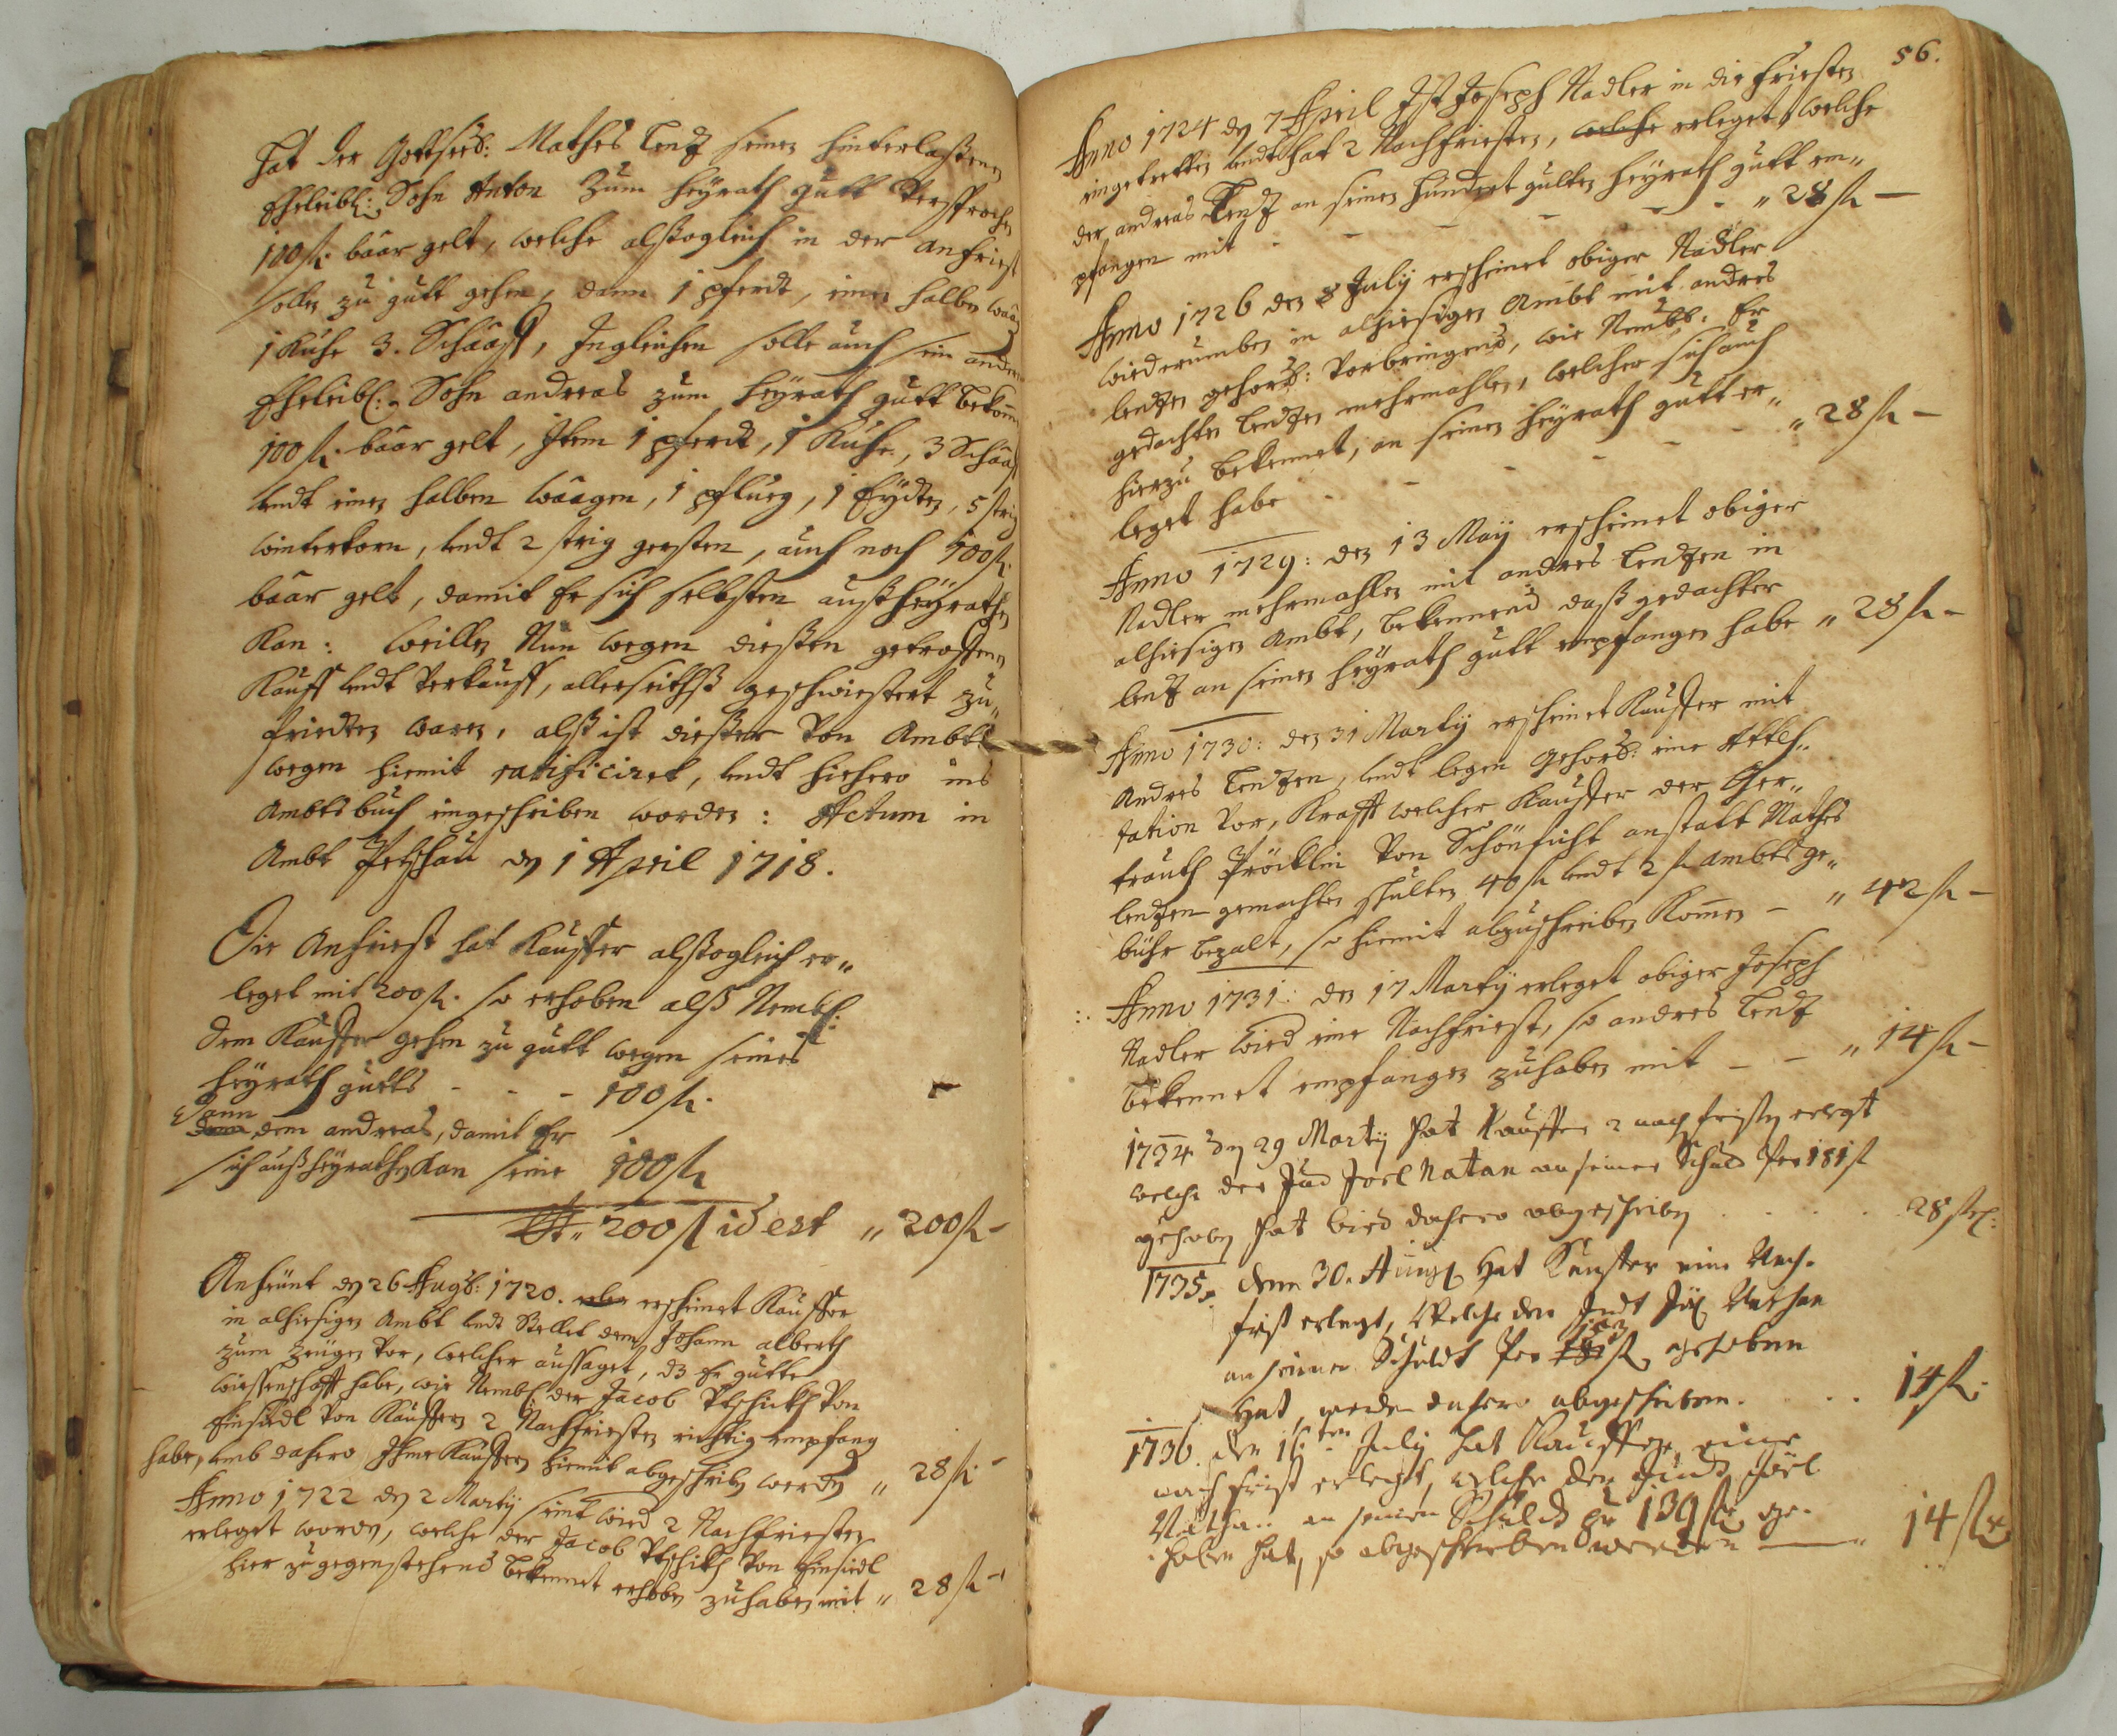 hat der Gottseel: Mathes Lentz seinen hinterlaßenen
Eheleibl: Sohn Anton zum heÿrath gutt Versprochen
100 fl. baar gelt, welche alßogleich in der anfriest
sollen zu gutt gehen, dann 1 pferdt, einen halben waag
1 Kuhe 3. Schaaff, Ingleichen solle auch sein ander
Eheleibl: Sohn andreas zum heÿrath gutt bekom
100 fl. baar gelt, Item 1 pferdt, 1 Kuhe, 3 Schaaff
undt einen halben waagen, 1 pflueg, 1 Eÿdten, 5 strig
winterkorn, undt 2 strig gersten, auch noch 100 fl.
baar gelt, damit Er sich selbsten außheÿrathen
Kan: Weillen Nun wegen dießen getroffenen
Kauff undt Verkauff, allerseithß geschwiestert zu„
frieden waren, alß ist dießer Von Ambts
wegen hiemit ratificiret, undt hiehero ins
Ambtsbuch eingeschrieben worden: Actum in
Ambt Petschau den 1 April 1718.
Die Anfriest hat Kauffer alßogleich er„
leget mit 200 fl. so erhoben alß Nembl:
dem Kauffer gehen zu gutt wegen seines
heÿrath gutts - - - 100 fl.
Dann dem andreas, damit Er
sich außheÿrathen Kan seine 100 fl
200 fl id est „ 200 fl -
Anheunt den 26 Augb: 1720. erscheinet Kauffer
in alhiesigen Ambt undt Stellet den Johann alberth
zum zeugen Vor, welcher aussaget, dz Er gutte
wissenschafft habe, wie Nembl: der Jacob Von
Einsiedl Von Kauffern 2 Nachfriesten richtig empfang
habe, umb dahero Ihme Kauffern hiemit abgeschrieben werden „ 28 fl. -
Anno 1722 den 2 Martÿ seint wied 2 Nachfriesten
erleget worden, welche der Jacob Von Einsiedl
hier zugegenstehend bekennet erhoben zuhaben mit „ 28 fl -
56.
Anno 1724 den 7 April Ist Joseph Nadler in die friesten
eingetretten undt hat 2 Nachfriesten, welche erleget, welche
der andreas Lentz an seinen hundert gulten heÿrath gutt em„
pfangen mit - - - - „ 28 fl -
Anno 1726 den 8 Julÿ erscheinet obiger Nadler
wiederumben in alhiesigen Ambt mit andres
Lentzen gehorsb: Vorbringend, wie Nembl: Er
gedachten Lentzen mehrmahlen, welcher sich auch
hierzu bekennet, an seinen heÿrath gutt er„
leget habe - - - - „ 28 fl -
Anno 1729: den 13 Maÿ erscheinet obiger
Nadler mehrmahlen mit andres Lentzen in
alhiesigen Ambt, bekennend daß gedachter
Lentz an seinen heÿrath gutt empfangen habe „ 28 fl -
Anno 1730: den 31 Martÿ erscheinet Kauffer mit
Andres Lentzen, undt legen gehorsb: eine Attes„
tation Vor, Krafft welcher Kauffer der Ger„
trauth Von Schönficht anstatt Mathes
Lentzen gemachten schulten 40 fl undt 2 fl ambtsge„
bühr bezalt, so hiemit abzuschreiben Kommen - „ 42 fl -
Anno 1731: den 17 Martÿ erleget obiger Joseph
Nadler wied eine Nachfriest, so andres Lentz
bekennet empfangen zuhaben mit - - „ 14 fl -
1734 den 29 Martÿ hat Kauffer 2 nachfristen erlegt
welche der Jud Joel Natan an seiner Schuld per 181 fl
gehoben hat wird dahero abgeschrieben . . . . 28 fl:
1735. denn 30. Augl: Hat Kauffer eine Nach.
frist erlegt, Welche der Judt Jöel Nathan
an seiner Schuldt per 153 fl gehoben
Hat, werden dahero abgeschrieben. . . . 14 fl.
1736. den 16ten Julÿ hat Kauffer eine
nachfrist erlegt, welche der Jude Joël
Nathan an seinen Schuld pr 139 fl ge-
hoben hat, so abgeschrieben worden — 14 fl